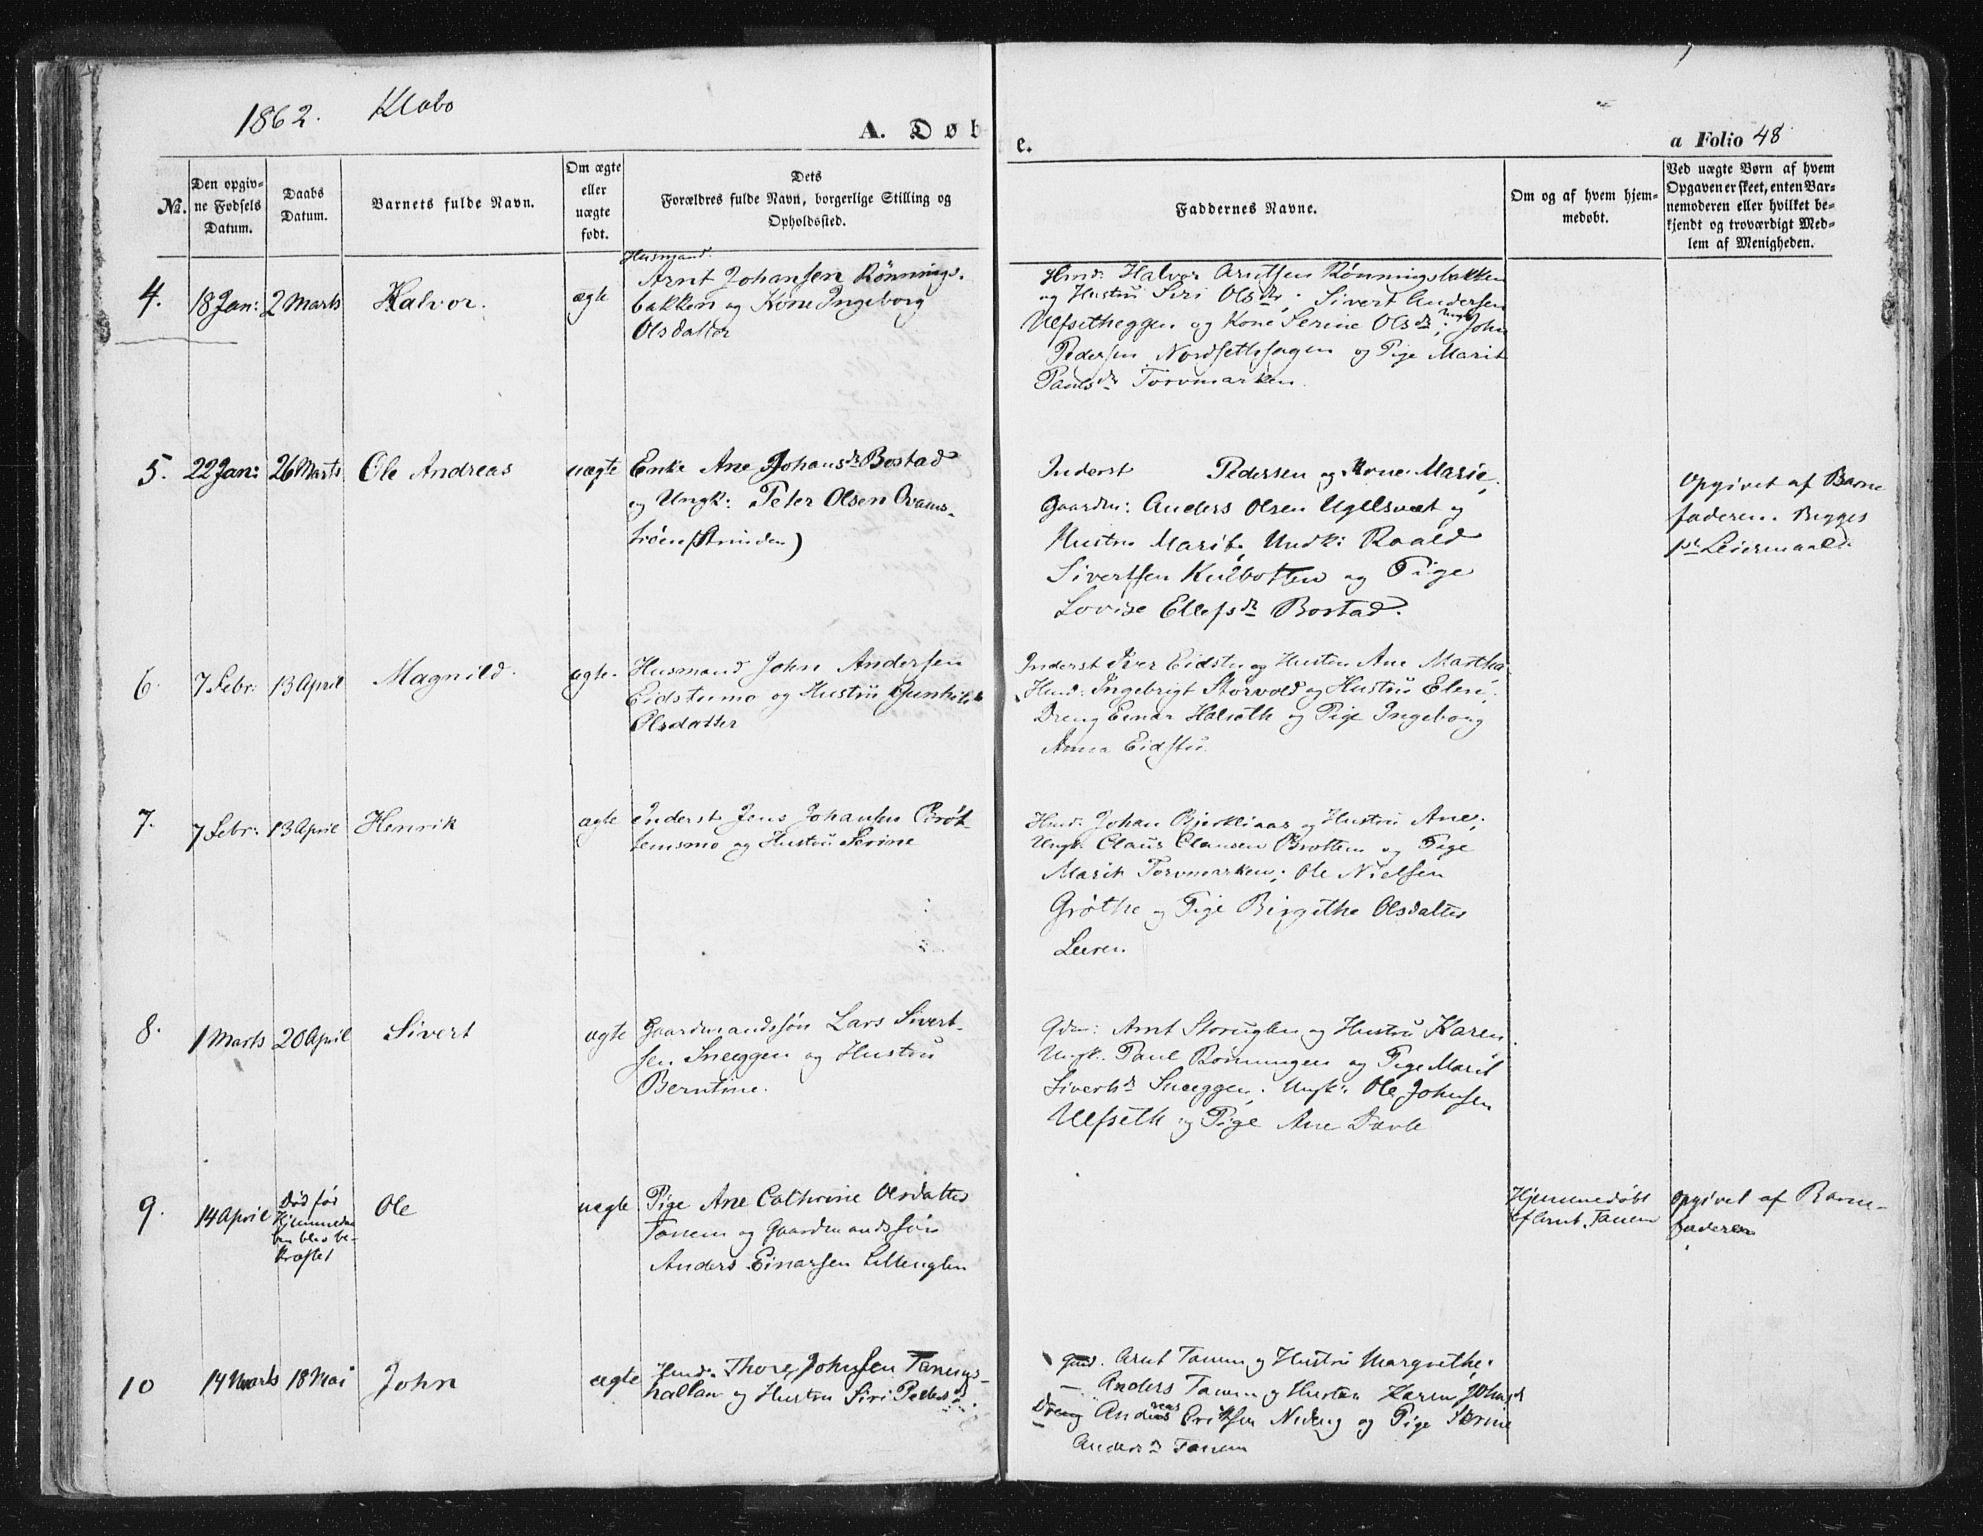 1862. Klæbo
A. Døbe.
a Folio 48
№.
Den opgiv-
ne Fødsels
Datum.
Daabs
Datum.
Barnets fulde Navn.
Om ægte
eller
uægte
født.
Dets
Forældres fulde Navn, borgerlige Stilling og
Opholdssted.
Faddernes Navne.
Om og af hvem hjem-
medøbt.
Ved uægte Børn af hvem
Opgaven er skeet, enten Bar-
nemoderen eller hvilket be-
kjendt og troværdigt Med-
lem af Menigheden.
4. 18 Jan: 2 Marts Halvor. ægte
Husmand
Arnt Johansen Rønnings-
bakken og Kone Ingeborg
Olsdatter
Hmd: Halvor Arntsen Rønningsbakken
og Hustru Siri Olsdr; Sivert Andersen
Ulfsetheggen og Kone Serine Olsdr; Ungk John
Pedersen Nordsethhagen og Pige Marit
Paulsdr Torvmarken.
5. 22 Jan: 26 Marts Ole Andreas uægte
Enke Ane Johansdr Bostad
og Ungk: Peter Olsen
(Strinden)
Inderst Pedersen og Kone Marie,
Gaardm: Anders Olsen Ugelsvæt og
Hustru Marit, Undk: Roald
Sivertsen Kulbotten og Pige
Lovise Ellefsdr Bostad.
Opgivet af Barne
faderen. Begges
1ste Leiermaal.
6. 7 Febr: 13 April Magnild. ægte.
Husmand John Andersen
Eidstumo og Hustru Gunhild
Olsdatter
Inderst Iver Eidstu og Hustru Ane Martha.
Hmd: Ingebrigt Storvold og Hustru Elen;
Dreng Einar Halseth og Pige Ingeborg
Anna Eidstu.
7. 7 Febr: 13 April Henrik ægte
Inderst Jens Johansen Brøt-
temsmo og Hustru Serine
Hmd: Johan Bjerkliaas og Hustru Ane;
Ungk. Claus Clausen Brottem og Pige
Marit Torvmarken; Ole Nielsen
Grøthe og Pige Birgithe Olsdatter
Leeren
8. 1 Marts 20 April Sivert ægte
Gaardmandssøn Lars Sivert-
sen Sneeggen og Hustru
Berntine.
Gdm: Arnt Storuglen og Hustru Karen.
Ungk. Paul Rønningen og Pige Marit
Sivertsdr Sneeggen; Ungk: Ole Johnsen
Ulfseth og Pige Ane Davle
9. 14 April
Død før
Hjemmedaa
ben blev be-
kræftet
Ole uægte
Pige Ane Cathrine Olsdatter
Tanem og Gaardmandssøn
Anders Einarsen Litleuglen
Hjemmedøbt
af Arnt Tanem
Opgivet af Barne-
faderen
10 14 Marts 18 Mai John ægte
Hmd: Thore Johnsen Tanems-
hallan og Hustru Siri Pedersdr.
Gmd. Arnt Tanem og Hustru Margrethe;
— Anders Tanem og Hustru Karen Johnsdr
Dreng Andreas Eriksen Nideng og Pige Serine
Andersdr Tanem